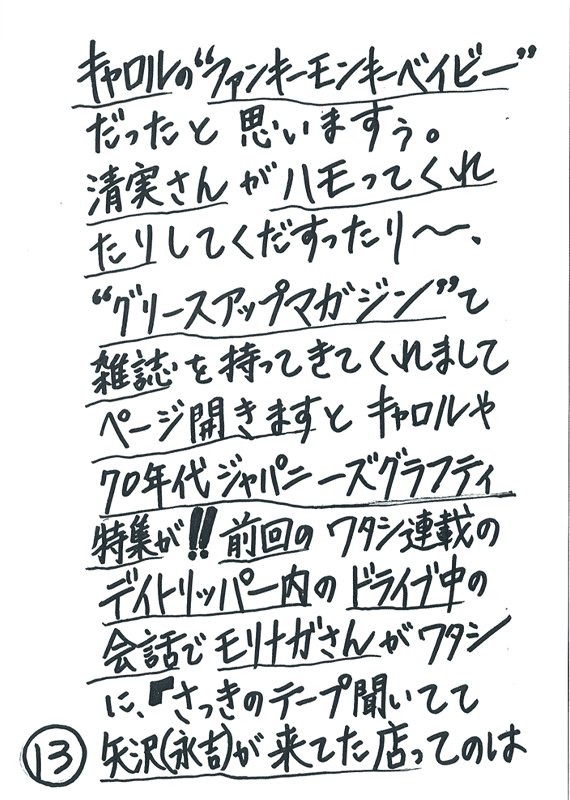 キャロルの“ファンキーモンキーベイビー”
だったと思いますぅ。
清実さんがハモってくれ
たりしてくだすったり〜、
“グリースアップマガジン”て
雑誌を持ってきてくれまして
ページ開きますとキャロルや
70年代ジャパニーズグラフティ
特集が!!前回のワタシ連載の
デイトリッパー内のドライブ中の
会話でモリナガさんがワタシ
に、『さっきのテープ聞いてて
⑬矢沢(永吉)が来てた店ってのは